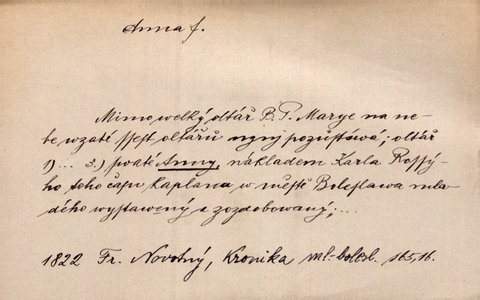 Anna f.
Mimo welký oltář B. P. Marye na ne-
be wzaté ssest oltářů nynj pozůstáwá; oltář
1) ... 3.) swaté Anny, nákladem Karla Rossý-
ho toho času kaplana w městě Boleslawa mla-
dého wystawený a zozdobowaný; ...
1822 Fr. Novotný, Kronika ml.-bolesl. 165,16.